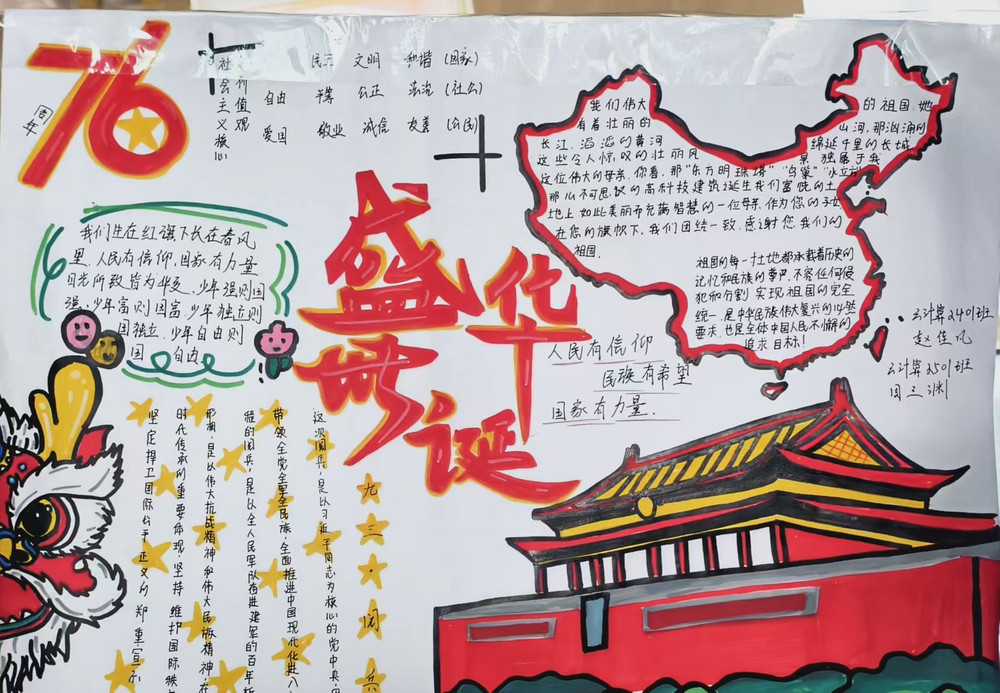 76
周年
社会主义核心
价值观
民主 文明 和谐 (国家)
自由 平等 公正 法治 (社会)
爱国 敬业 诚信 友善 (公民)
我们生在红旗下长在春风
里.人民有信仰.国家有力量
目光所致皆为华夏.少年强则国
强.少年富则国富.少年独立则
国独立.少年自由则
国 自由.
盛世
华诞
人民有信仰
民族有希望
国家有力量.
我们伟大的祖国.她
有着壮丽的山河.那汹涌的
长江.滔滔的黄河绵延千里的长城
这些令人惊叹的壮丽风景独属于我
这位伟大的母亲.你看.那"东方明珠塔""鸟巢""水立方"
那么不可思议的高科技建筑诞生我们富饶的土
地上 如此美丽而充满智慧的一位母亲.作为您的子女
在您的旗帜下.我们团结一致.感谢您.我们的
祖国.
祖国的每一寸土地都承载着历史的
记忆和民族的尊严.不容任何侵
犯和分割 实现祖国的完全
统一.是中华民族伟大复兴的必然
要求.也是全体中国人民不懈的
追求目标!
云计算2401班
赵佳凡
云计算2501班
周三渊
九三·阅兵
这次阅兵.是以习近平同志为核心的党中央
带领全党全军全民族.全面推进中国现代化进入
程的阅兵.是以全人民军队奋进建军的百年
那闸.是以伟大抗战精神和伟大民族精神在
时代传承的重要体现.坚持 维护国际秩
坚定捍卫国际公平正义的 郑重宣示